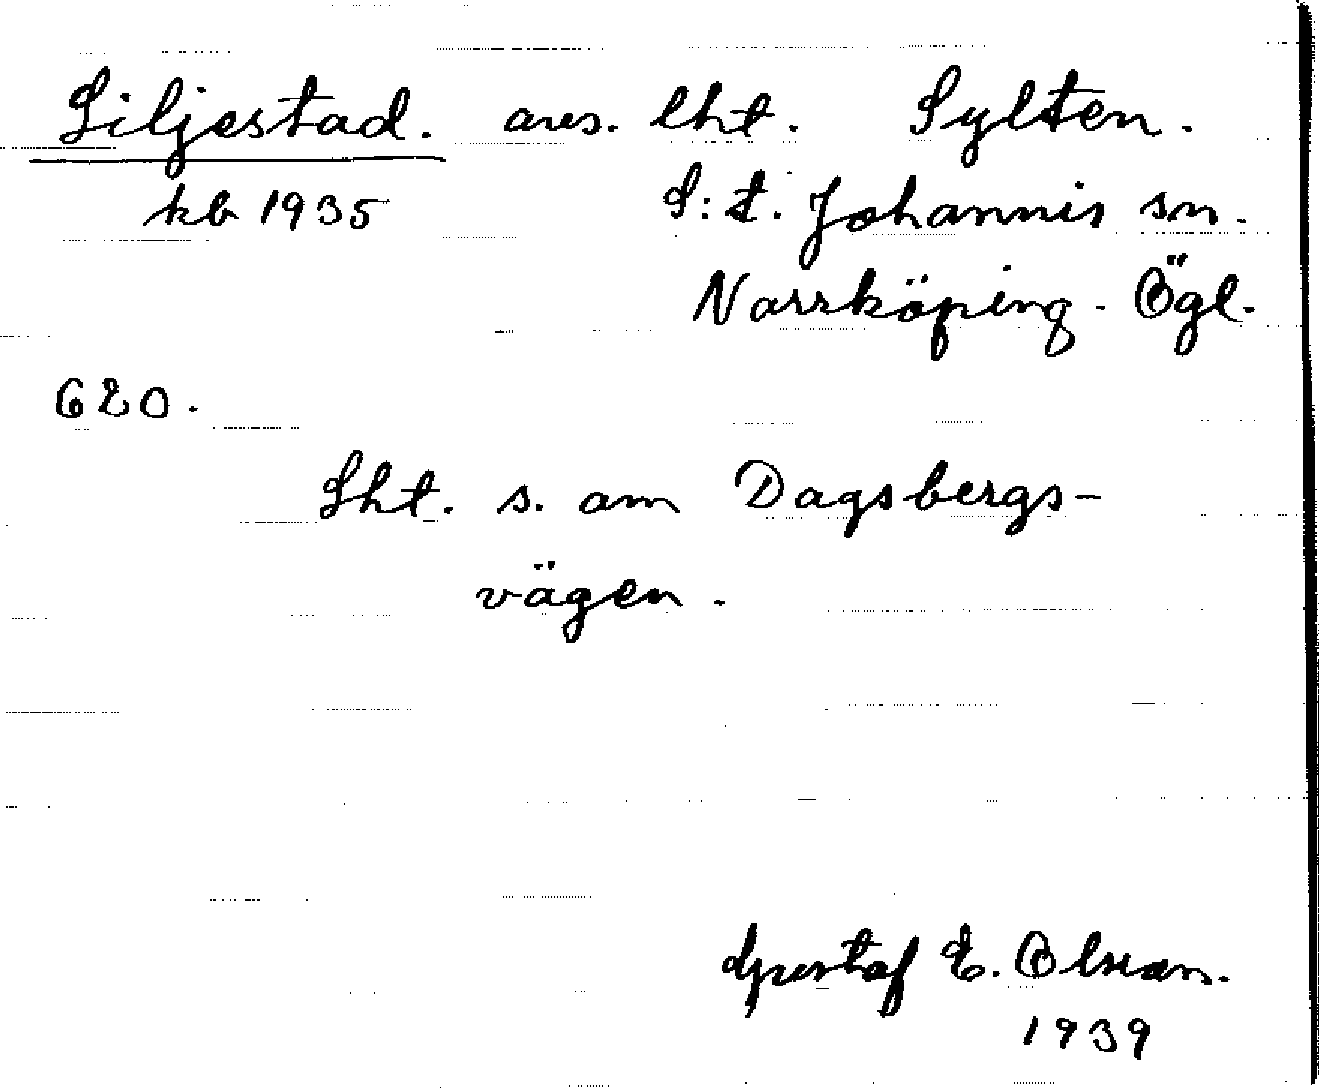 Liljestad. avs. lht. Sylten.
kb 1935 S:t. Johannis sn.
Norrköping. Ögl.
620.
Lht. s. om Dagsbergs-
vägen.
Gustaf E. Olsson.
1939